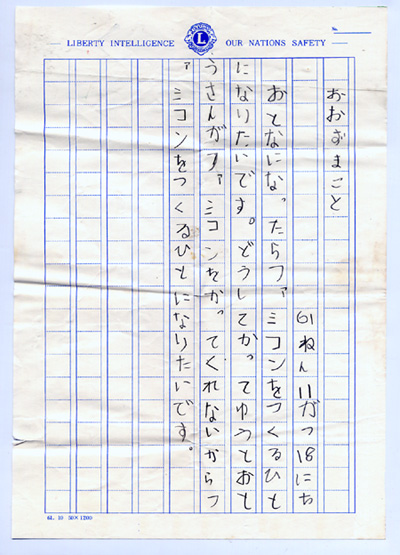 No.
LIBERTY INTELLIGENCE OUR NATIONS SAFETY
L
おおずまこと
61ねん11がつ18にち
おとなになったらファミコンをつくるひと
になりたいです。どうしてかってゆうとおと
うさんがファミコンをかってくれないからフ
ァミコンをつくるひとになりたいです。
6L. 10 30×1200